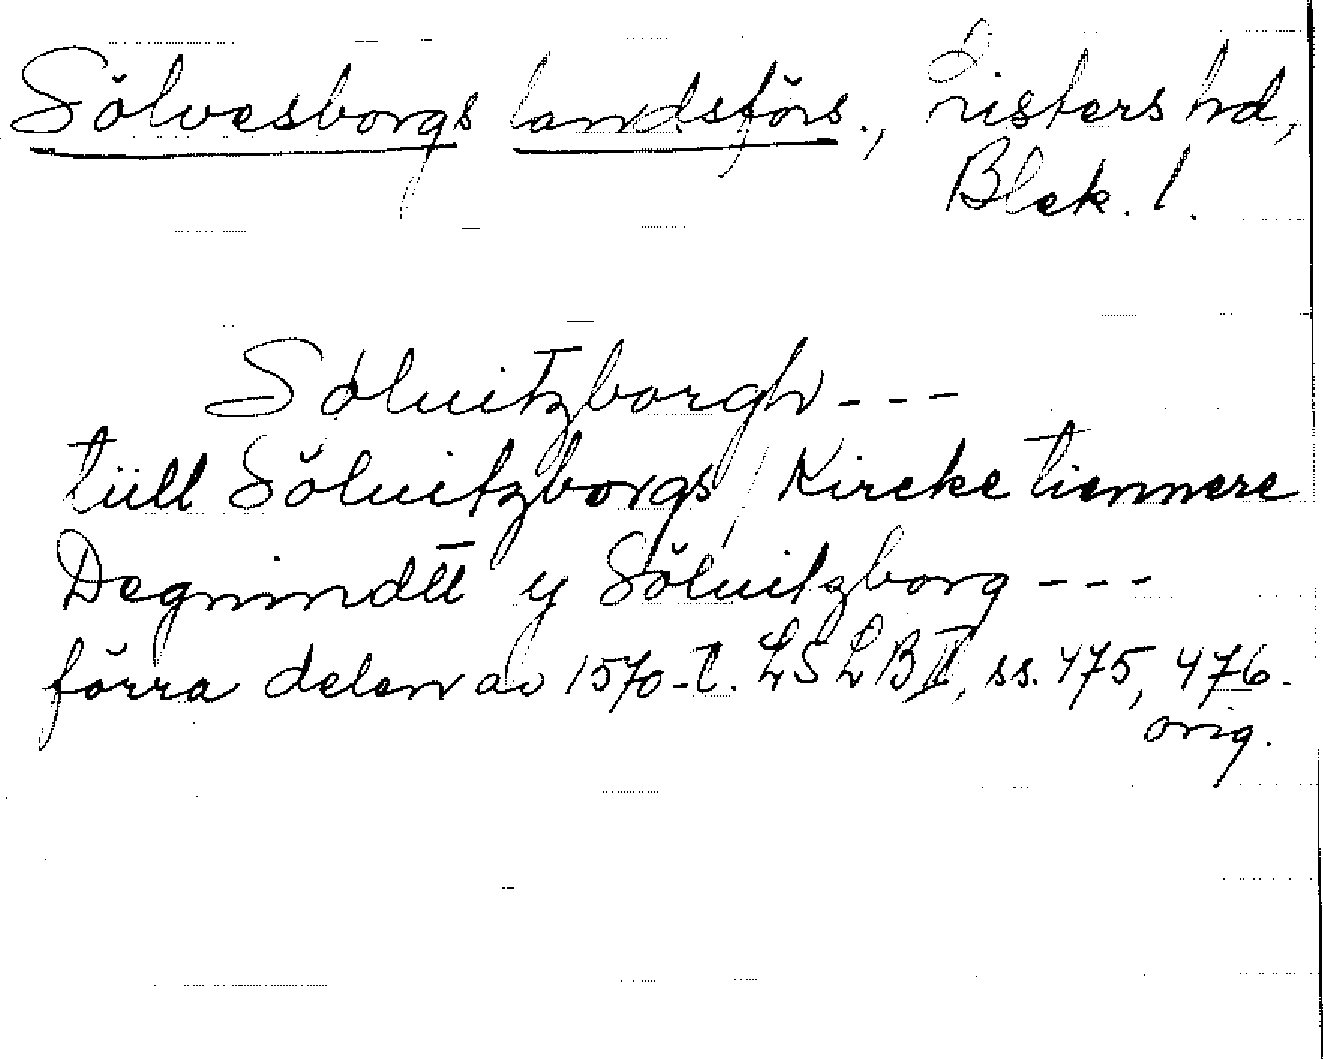 Sölvesborgs landsförs., Listers hd,
Blek. l.
Sóluitzborgh ---
tüll Söluitzborgs / Kircke tiennere
Degnind̅t̅t̅ y Söluitzborg ---
förra delen av 1570-t. LSLB II, ss. 475, 476.
orig.